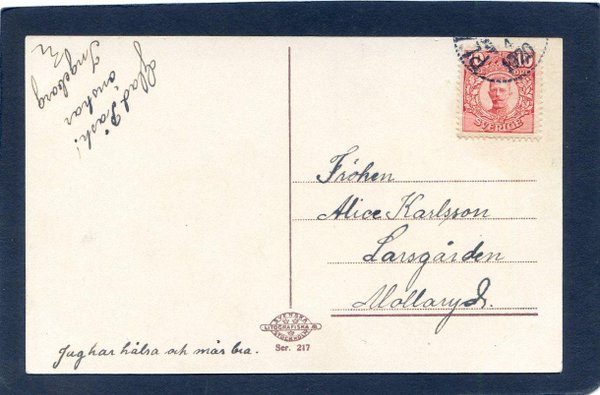 Glad Påsk!
önskar
Ingeborg
Fröken
Alice Karlsson
Larsgården
Mollaryd.
SVERIGE
1920
SVENSKA
LITOGRAFISKA AB
STOCKHOLM
Ser. 217
Jag har hälsa och mår bra.